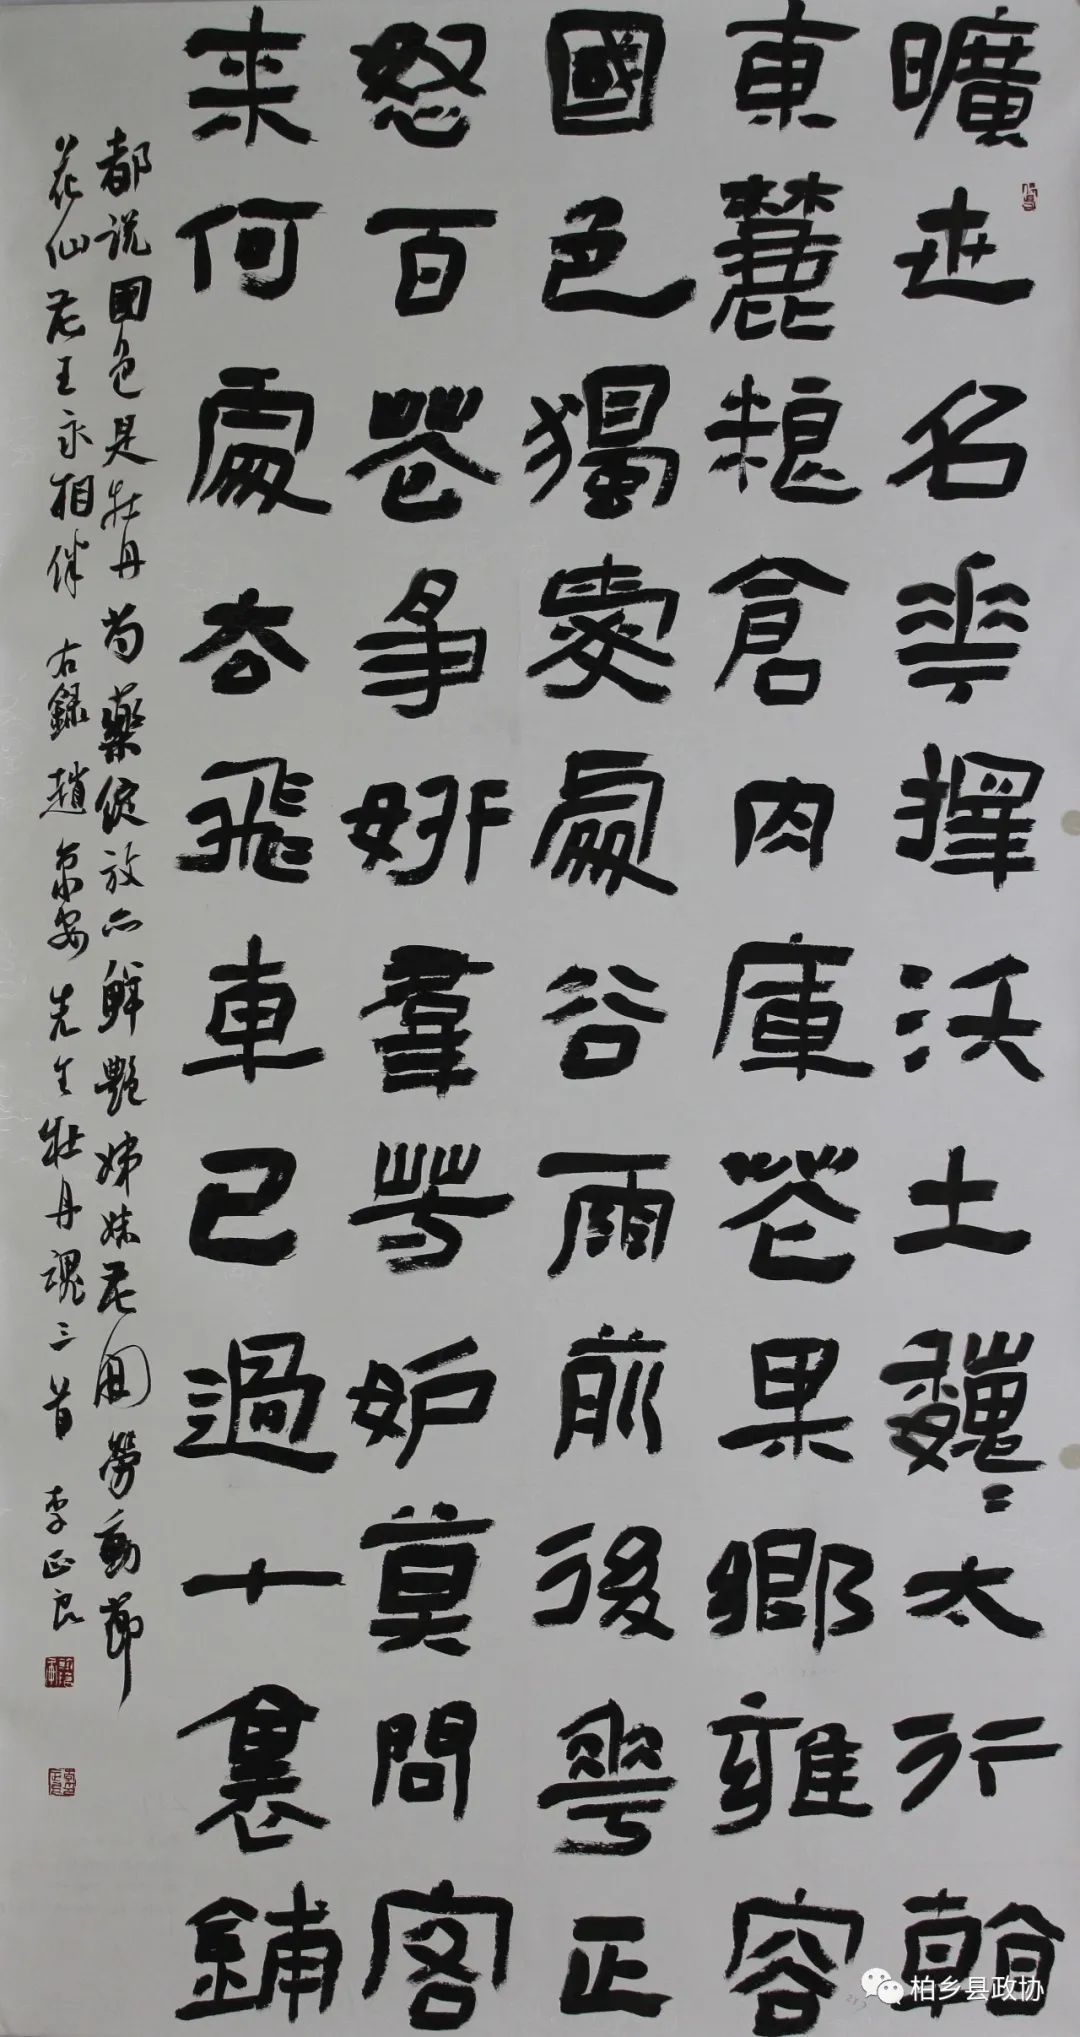 曠世名華擇沃土巍〻太行朝
東麓糧倉肉庫花果鄉雍容
國色獨愛處谷雨前後華正
怒百花爭妍羣芳妒莫問客
来何處去飛車已過十裏鋪
都说國色是牡丹芍藥綻放亦鮮艷姊妹花開勞動節
花仙花王永相伴 右録趙京安先生牡丹魂三首 李正良
柏乡县政协